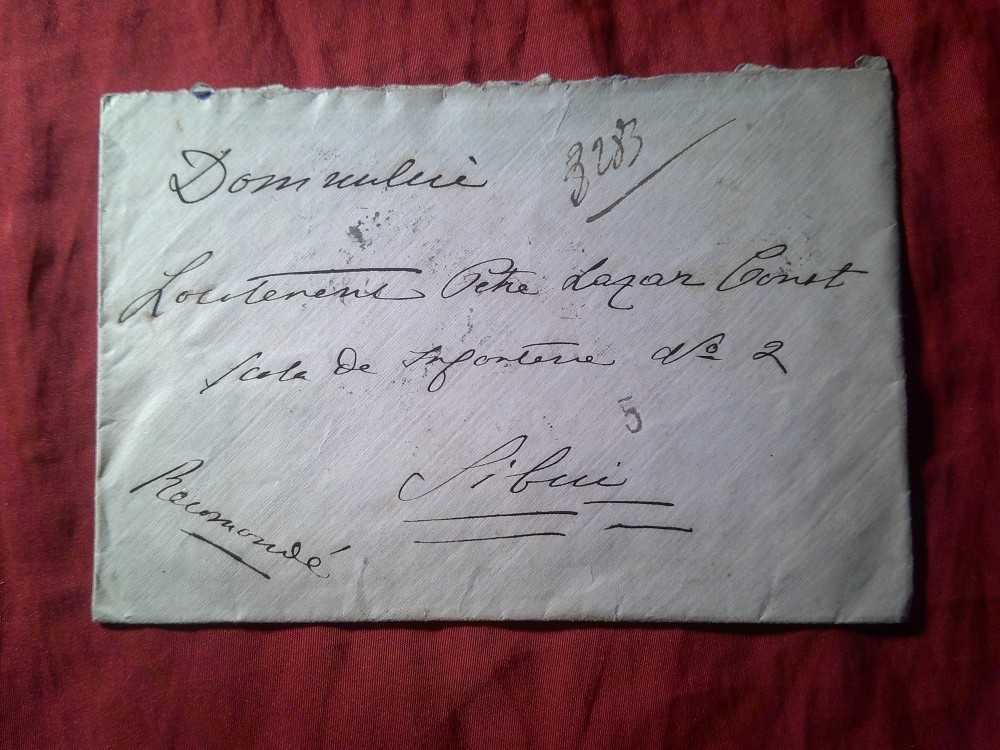 Domnului
3283
Locotenent Petre Lazar Const
Scola de Infanterie No 2
5
Sibui
Recomandé